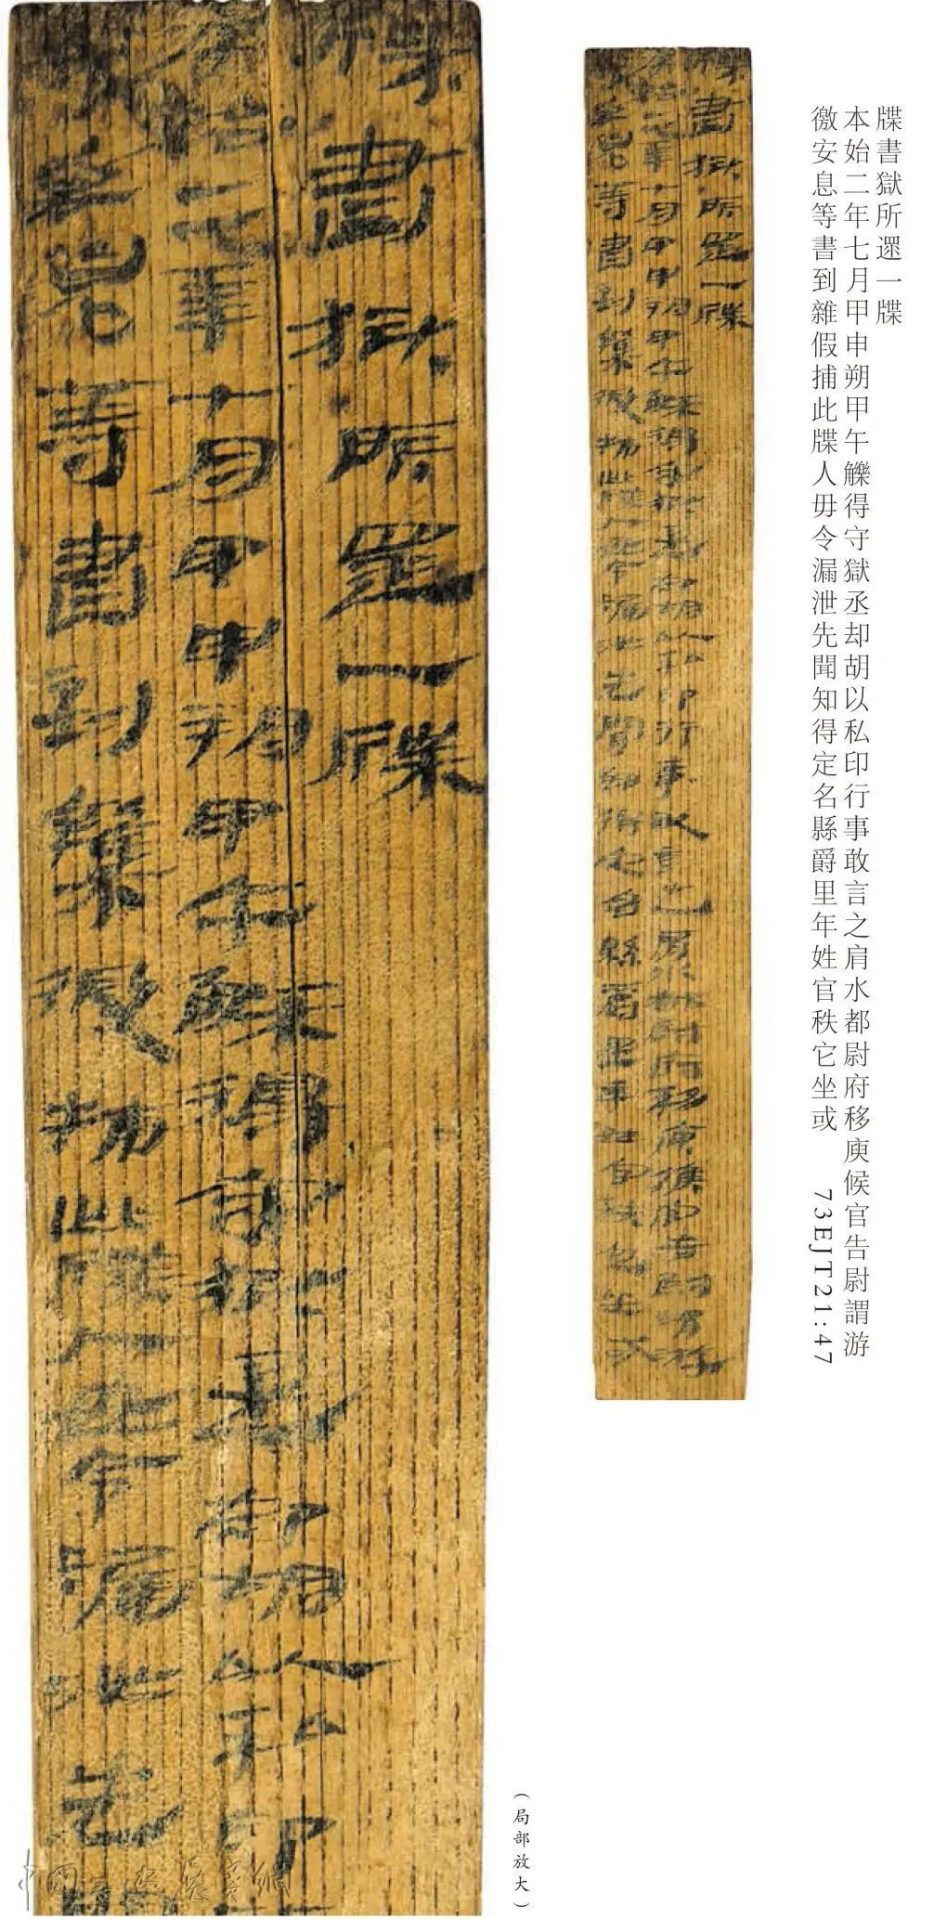 牒書獄所遝一牒
本始二年七月甲申朔甲午觻得守獄丞却胡以私印行事敢言之肩水都尉府移庾候官告尉謂游
徼安息等書到雜假捕此牒人毋令漏泄先聞知得定名縣爵里年姓官秩它坐或 73EJT21:47
(局部放大)